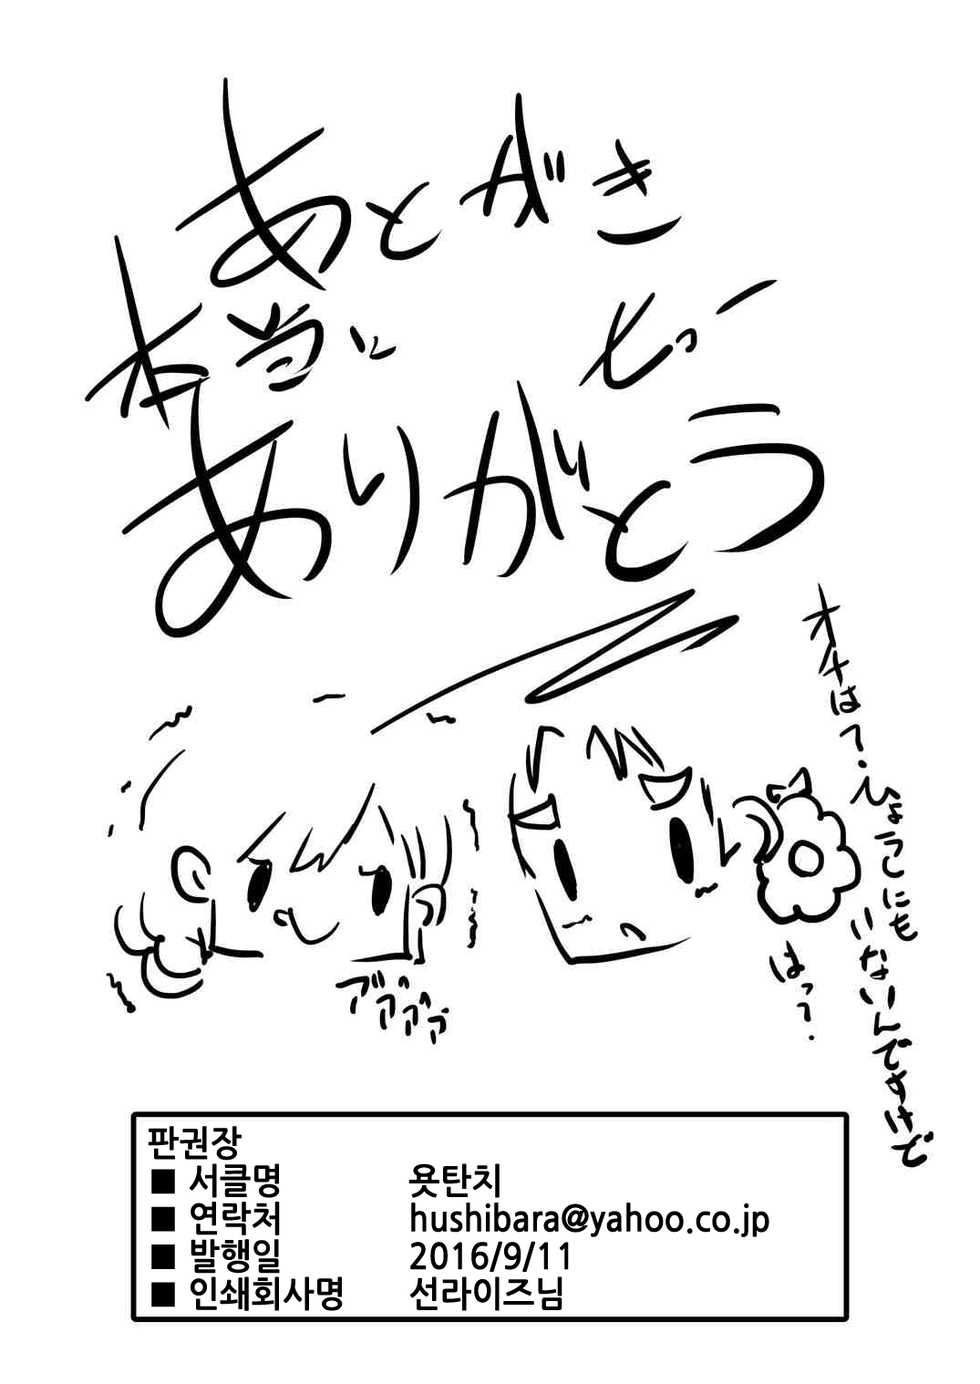 あとがき
本当に
ありがとう
オチは?
ひょうこにも
いないんですけど
はっ?
판권장
■ 서클명 욧탄치
■ 연락처 hushibara@yahoo.co.jp
■ 발행일 2016/9/11
■ 인쇄회사명 선라이즈님